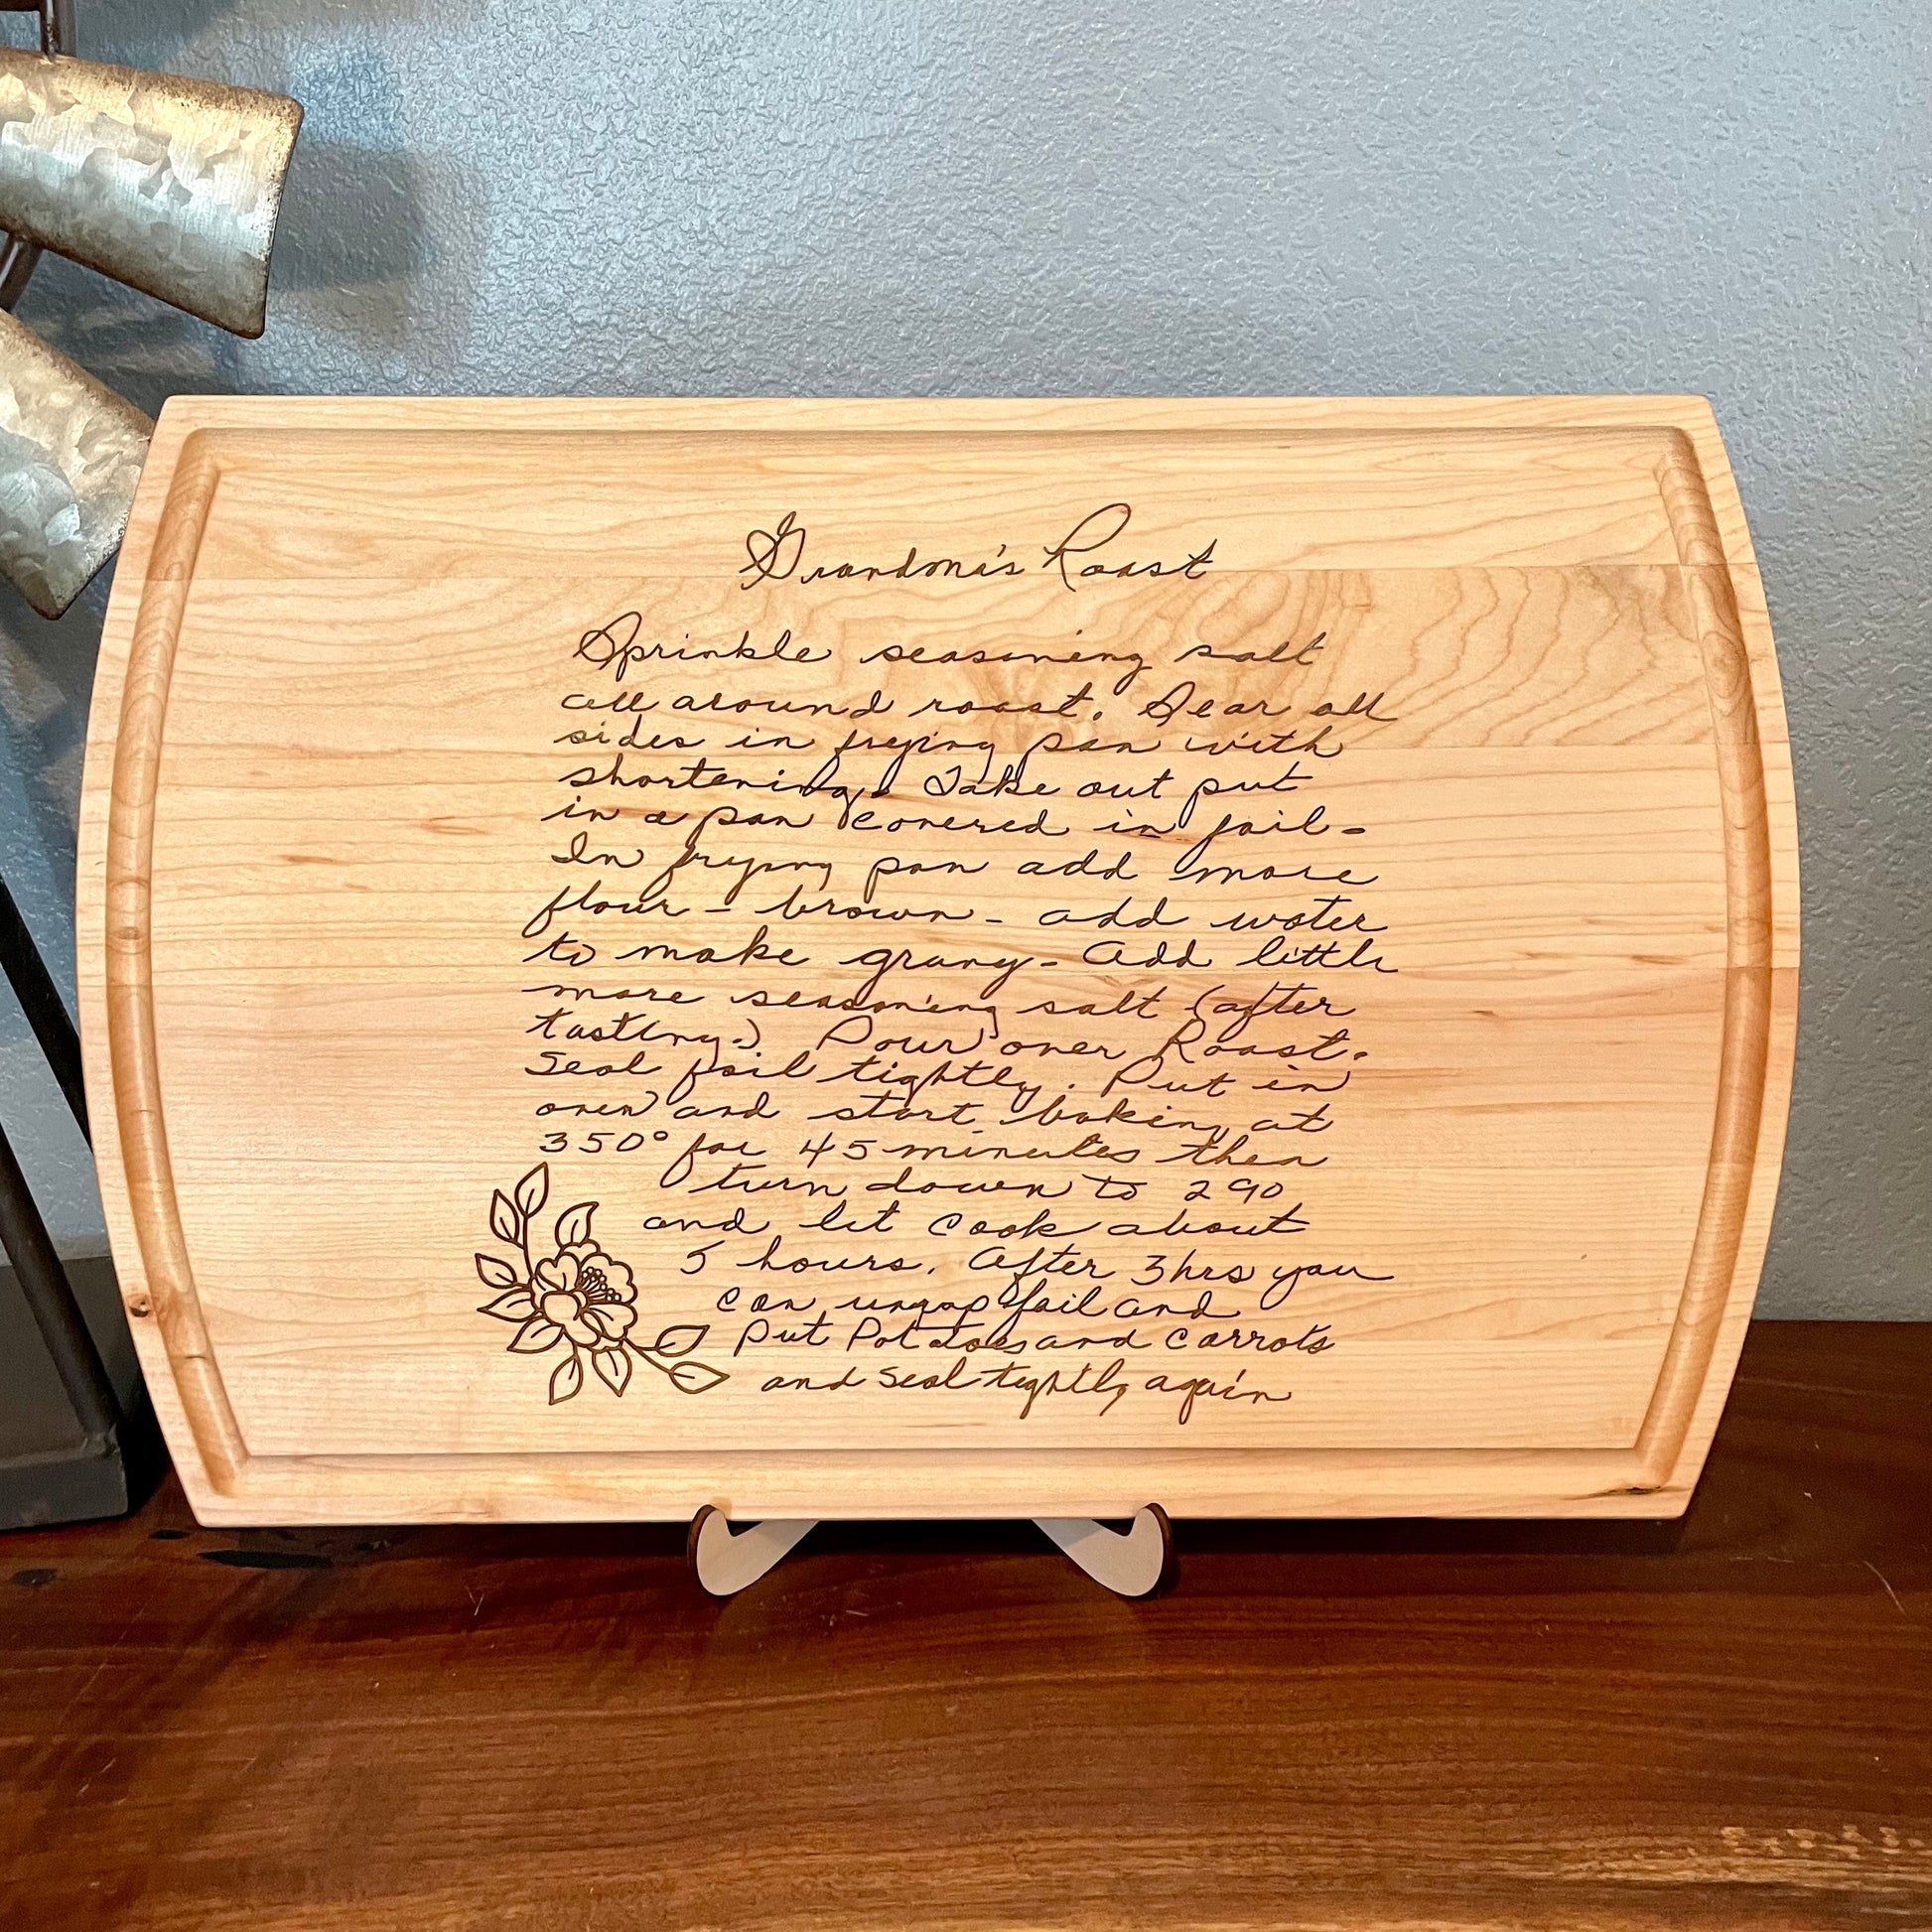 Grandma's Roast
Sprinkle seasoning salt
all around roast. Sear all
sides in frying pan with
shortening. Take out put
in a pan covered in foil-
In frying pan add more
flour - brown - add water
to make gravy - Add little
more seasoning salt (after
tasting.) Pour over Roast.
Seal foil tightly. Put in
oven and start baking at
350° for 45 minutes then
turn down to 290
and let cook about
5 hours. After 3hrs you
can foil and
put Potatoes and carrots
and seal tightly again